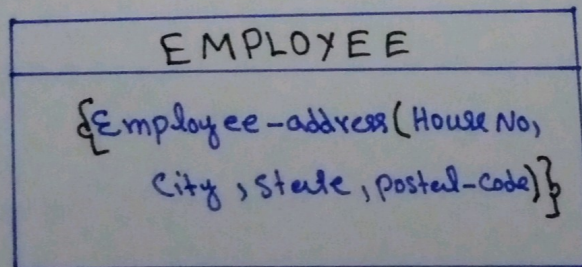 EMPLOYEE
{Employee-address(House No,
City, State, postal-code)}